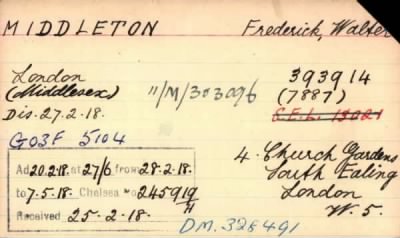 MIDDLETON Frederick, Walter
London 11/M/303096 393914
(Middlesex) (7887)
Dis. 27.2.18.
GO3F 5104
4. Church Gardens
South Ealing
London
W. 5.
Ad 20.2.18. at 27/6 from 28.2.18.
to 7.5.18. Chelsea No 245919/H
Received 25-2-18.
DM. 328491